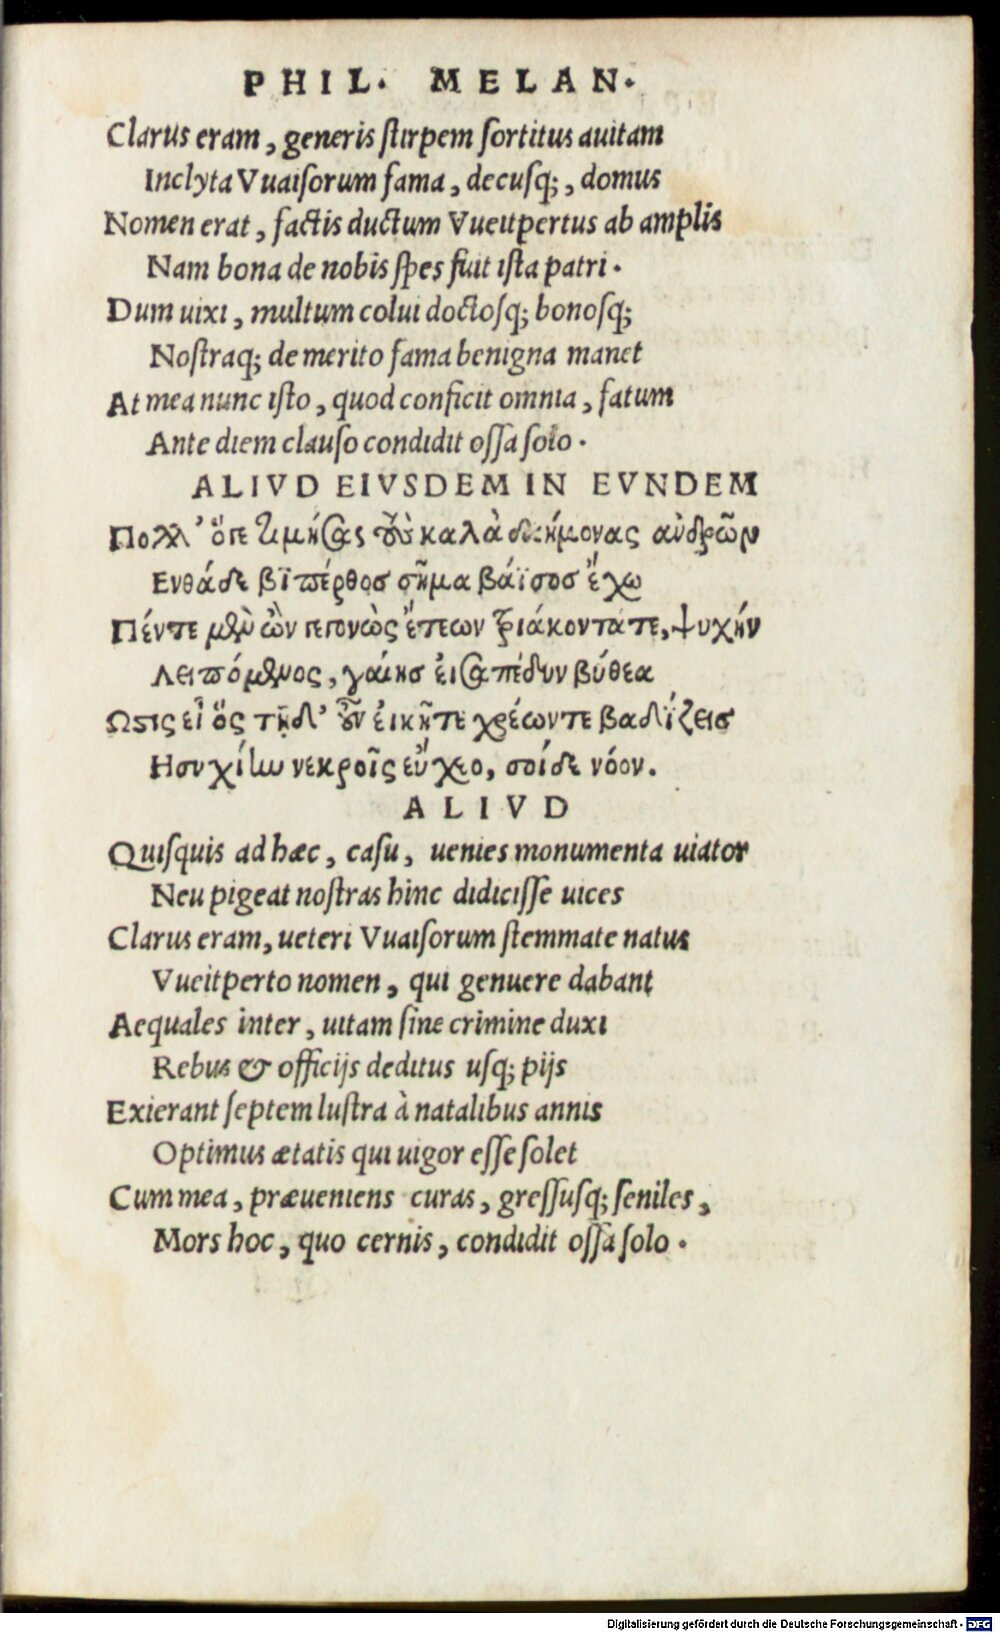 PHIL. MELAN.
Clarus eram, generis stirpem sortitus auitam
Inclyta Vuaisorum fama, decusq;, domus
Nomen erat, factis ductum Vueitpertus ab amplis
Nam bona de nobis spes fuit ista patri.
Dum uixi, multum colui doctosq; bonosq;
Nostraq; de merito fama benigna manet
At mea nunc isto, quod conficit omnia, fatum
Ante diem clauso condidit ossa solo.
ALIVD EIVSDEM IN EVNDEM
Πολλ' ὅγε τιμήσας τοὺ καλὰ δαήμονας ανδρῶν
Ενθάδε βϊτπέρθος σῆμα βάϊσος ἔχω
Πέντε μὲν ὢν γεγονὼς ἔτεων τριάκοντάτε, ψυχήν
Λειπόμενος, γαίης εἰσαπέδυν βύθεα
Ωστις εἶ ὅς τῇδ' οὖν εἰκῆτε χρέωντε βαδίζεις
Ησυχίην νεκροῖς εὔχεο, σοίδε νόον.
ALIVD
Quisquis ad hæc, casu, uenies monumenta uiator
Neu pigeat nostras hinc didicisse uices
Clarus eram, ueteri Vuaisorum stemmate natus
Vueitperto nomen, qui genuere dabant
Aequales inter, uitam sine crimine duxi
Rebus & officijs deditus usq; pijs
Exierant septem lustra à natalibus annis
Optimus ætatis qui uigor esse solet
Cum mea, præueniens curas, gressusq; seniles,
Mors hoc, quo cernis, condidit ossa solo.
Digitalisierung gefördert durch die Deutsche Forschungsgemeinschaft - DFG